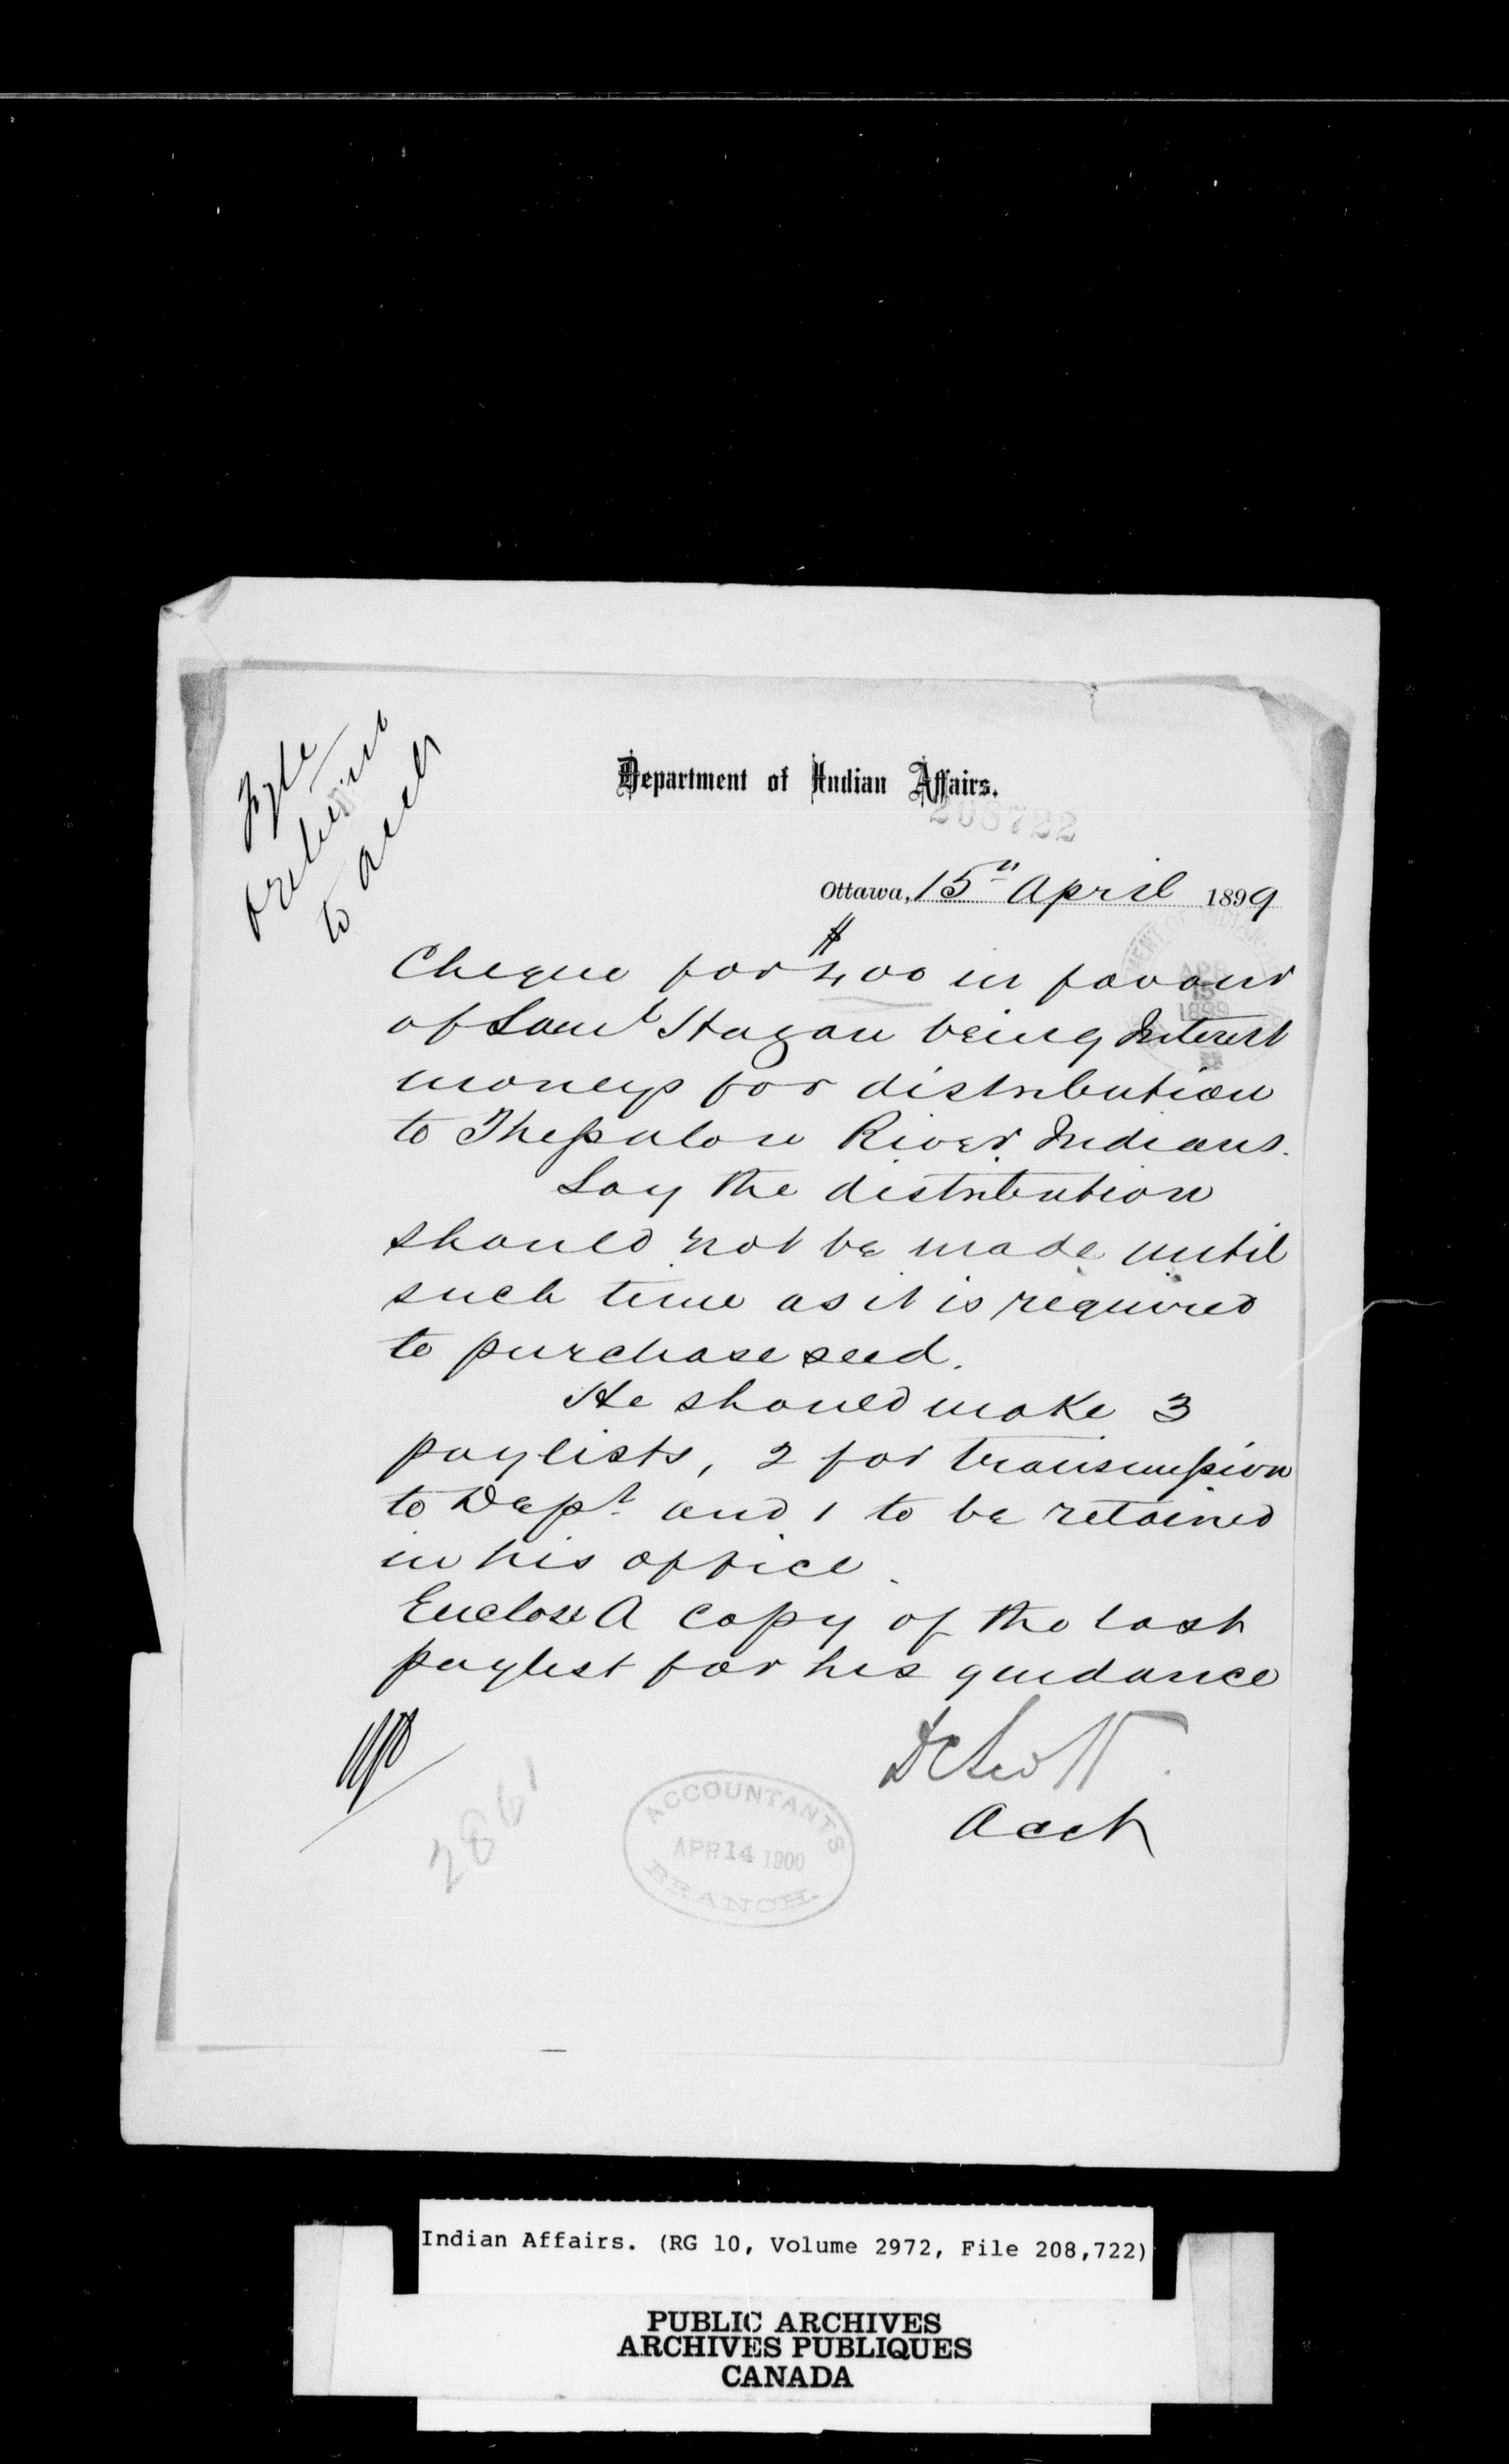 Fyle
& return
to acct
Department of Indian Affairs.
208722
Ottawa, 15th April 1899
APR
15
1899
Cheque for $400 in favour
of Saml Hagan being Interest
moneys for distribution
to Thessalon River Indians.
Say the distribution
should not be made until
such time as it is required
to purchase seed.
He should make 3
paylists, 2 for transmission
to Dept. and 1 to be retained
in his office.
Enclose A copy of the last
paylist for his guidance
D C Scott.
Acct
2861
ACCOUNTANTS
APR 14 1900
BRANCH.
Indian Affairs. (RG 10, Volume 2972, File 208,722)
PUBLIC ARCHIVES
ARCHIVES PUBLIQUES
CANADA